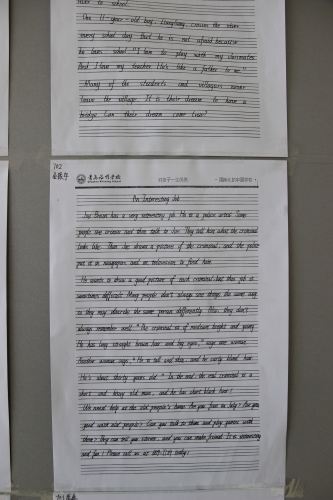 river to school.
One 11-year-old boy, Liangliang, crosses the river
every school day. But he is not afraid because
he loves school. "I love to play with my classmates.
And I love my teacher. He's like a father to me."
Many of the students and villagers never
leave the village. It is their dream to have a
bridge. Can their dream come true?
702
An Interesting Job
Joe Brown has a very interesting job. He is a police artist. Some
people see crimes and then talk to Joe. They tell him what the criminal
looks like. Then he draws a picture of the criminal, and the police
put it in newspapers and on television to find him.
He wants to draw a good picture of each criminal, but this job is
sometimes difficult. Many people don't always see things the same way
so they may describe the same person differently. Also, they don't
always remember well. "The criminal is of medium height and young.
He has long straight brown hair and big eyes," says one woman.
Another woman says, "He is tall and thin, and he has curly blond hair.
He's about thirty years old." In the end, the real criminal is a
short and heavy old man, and he has short black hair!
We need help at the old people's home. Are you free in July? Are you
good with old people? Can you talk to them and play games with
them? They can tell you stories, and you can make friends. It is interesting
and fun! Please call us at
today!